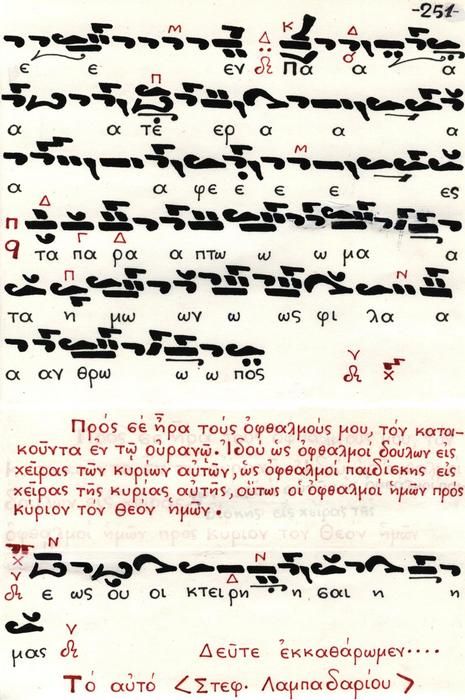 -251-
Μ Δ Κ Δ
ε ε εν δι Πα α α
Π
α α τε ερ α α α
Μ
α α φε ε ε ε ες
Δ
Π
q τα πα ρα α πτω ω ω μα α
Γ Δ
Π Ν
τα η μω ων ω ως φι λα α
α αν θρω ω ω πος
Πρός σέ ἦρα τούς ὀφθαλμούς μου, τόν κατοι-
κοῦντα ἐν τῷ οὐρανῷ. Ἰδού ὡς ὀφθαλμοί δούλων εἰς
χεῖρας τῶν κυρίων αὐτῶν, ὡς ὀφθαλμοί παιδίσκης εἰς
χεῖρας τῆς κυρίας αὐτῆς, οὕτως οἱ ὀφθαλμοί ἡμῶν πρός
Κύριον τόν Θεόν ἡμῶν.
Ν Ν
ε ως ου οι κτειρη η σαι η η
Δ
μας Δεῦτε ἐκκαθάρωμεν....
Τό αὐτό <Στεφ. Λαμπαδαρίου>